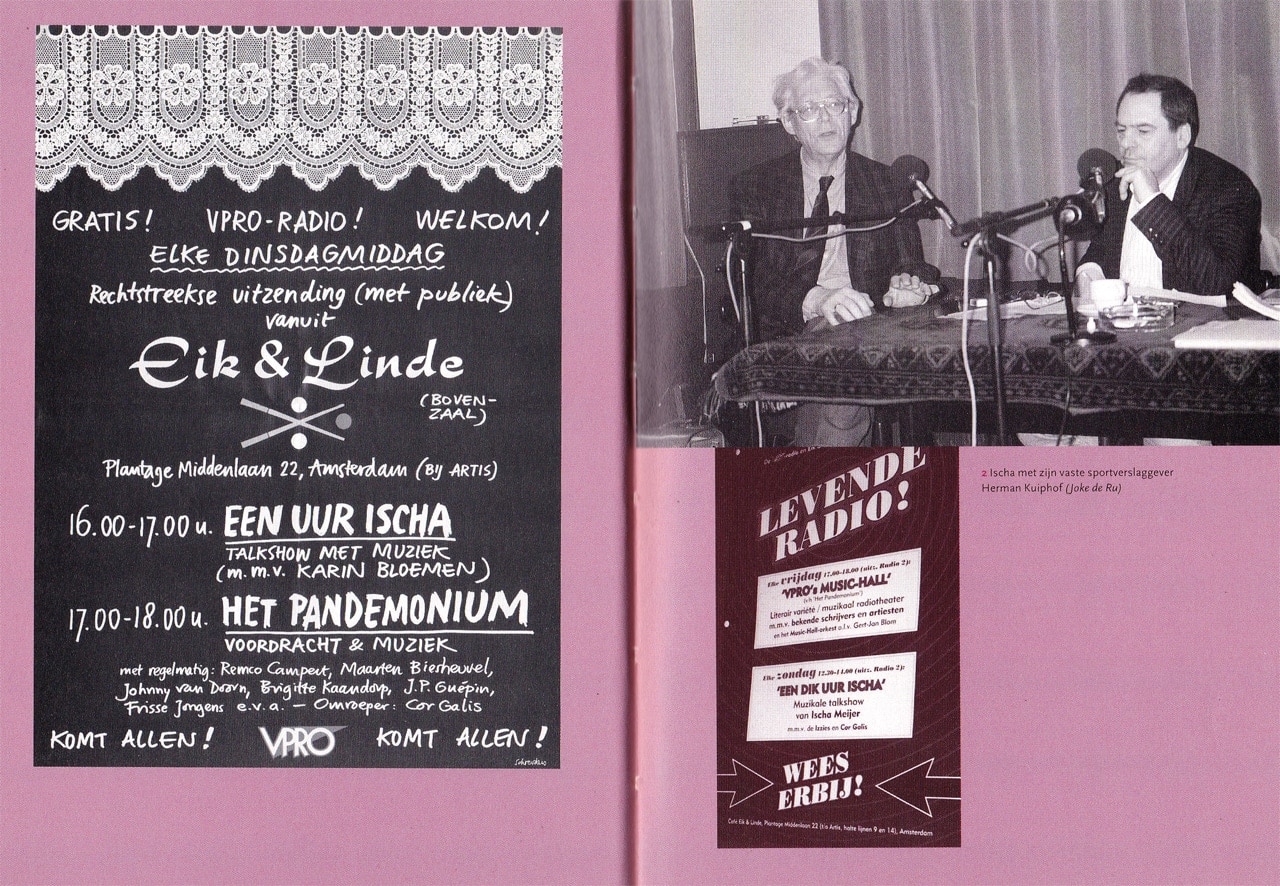 GRATIS! VPRO-RADIO! WELKOM!
ELKE DINSDAGMIDDAG
Rechtstreekse uitzending (met publiek)
vanuit
Eik & Linde
(BOVEN-
ZAAL)
Plantage Middenlaan 22, Amsterdam (BIJ ARTIS)
16.00-17.00 u. EEN UUR ISCHA
TALKSHOW MET MUZIEK
(m.m.v. KARIN BLOEMEN)
17.00-18.00 u. HET PANDEMONIUM
VOORDRACHT & MUZIEK
met regelmatig: Remco Campert, Maarten Biesheuvel,
Johnny van Doorn, Brigitte Kaandorp, J.P. Guépin,
Frisse Jongens e.v.a. — Omroeper: Cor Galis
KOMT ALLEN! VPRO KOMT ALLEN!
LEVENDE
RADIO!
Elke vrijdag 17.00-18.00 (uitz. Radio 2):
'VPRO's MUSIC-HALL'
(v/h 'Het Pandemonium')
Literair variété / muzikaal radiotheater
m.m.v. bekende schrijvers en artiesten
en het Music-Hall-orkest o.l.v. Gert-Jan Blom
Elke zondag 12.30-14.00 (uitz. Radio 2):
'EEN DIK UUR ISCHA'
Muzikale talkshow
van Ischa Meijer
m.m.v. de Izzies en Cor Galis
WEES
ERBIJ!
Café Eik & Linde, Plantage Middenlaan 22 (t/o Artis, halte lijnen 9 en 14), Amsterdam
2 Ischa met zijn vaste sportverslaggever
Herman Kuiphof (Joke de Ru)